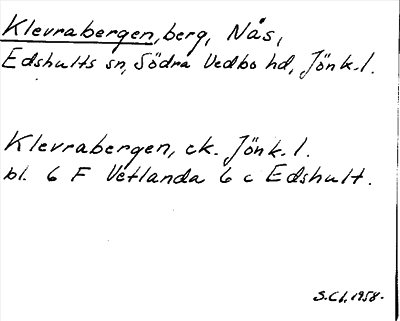 Klevrabergen, berg, Nås,
Edshults sn, Södra Vedbo hd, Jönk. l.
Klevrabergen, ek. Jönk. l.
bl. 6 F Vetlanda 6 c Edshult.
S.Cl. 1958.